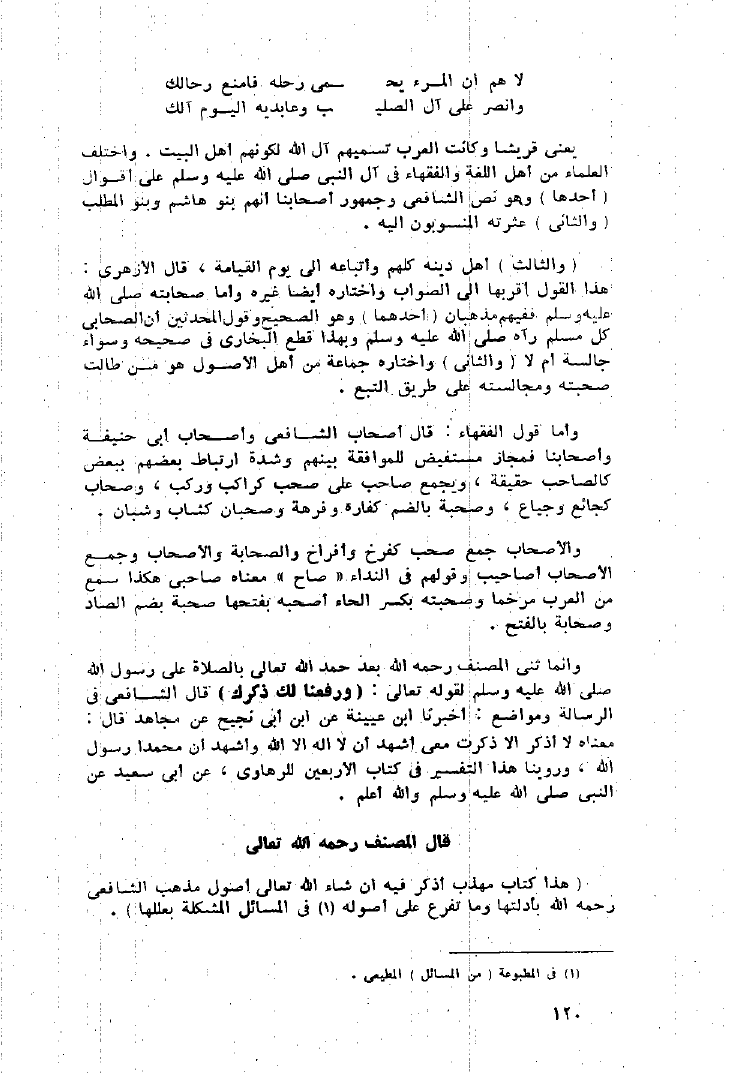 لا هم أن المرء يحـ ـمى رحله فامنع رحالك
وانصر على آل الصليـ ـب وعابديه اليـوم آلك
يعنى قريشا وكانت العرب تسميهم آل الله لكونهم أهل البيت . واختلف
العلماء من أهل اللغة والفقهاء فى آل النبى صلى الله عليه وسلم على أقـوال
( أحدها ) وهو نص الشافعى وجمهور أصحابنا أنهم بنو هاشم وبنو المطلب
( والثانى ) عثرته المنسوبون اليه .
( والثالث ) أهل دينه كلهم وأتباعه الى يوم القيامة ، قال الأزهرى :
هذا القول أقربها الى الصواب واختاره أيضا غيره وأما صحابته صلى الله
عليه وسلم ففيهم مذهبان ( أحدهما ) وهو الصحيح وقول المحدثين أن الصحابى
كل مسلم رآه صلى الله عليه وسلم وبهذا قطع البخارى فى صحيحه وسواء
جالسة أم لا ( والثانى ) واختاره جماعة من أهل الأصـول هو مـن طالت
صحبته ومجالسته على طريق التبع .
وأما قول الفقهاء : قال أصحاب الشـافعى وأصـحاب أبى حنيفـة
وأصحابنا فمجاز مستفيض للموافقة بينهم وشدة ارتباط بعضهم ببعض
كالصاحب حقيقة ، ويجمع صاحب على صحب كراكب وركب ، وصحاب
كجائع وجياع ، وصحبة بالضم كفارة وفرهة وصحبان كشاب وشبان .
والأصحاب جمع صحب كفرخ وأفراخ والصحابة والأصحاب وجمـع
الأصحاب أصاحيب وقولهم فى النداء « صاح » معناه صاحبى هكذا سـمع
من العرب مرخما وصحبته بكسر الحاء أصحبه بفتحها صحبة بضم الصاد
وصحابة بالفتح .
وانما ثنى المصنف رحمه الله بعد حمد الله تعالى بالصلاة على رسول الله
صلى الله عليه وسلم لقوله تعالى : ( ورفعنا لك ذكرك ) قال الشـافعى فى
الرسالة ومواضع : أخبرنا ابن عيينة عن ابن أبى نجيح عن مجاهد قال :
معناه لا أذكر الا ذكرت معى أشهد أن لا اله الا الله وأشهد أن محمدا رسول
الله ، وروينا هذا التفسير فى كتاب الأربعين للرهاوى ، عن أبى سعيد عن
النبى صلى الله عليه وسلم والله أعلم .
قال المصنف رحمه الله تعالى
( هذا كتاب مهذب أذكر فيه ان شاء الله تعالى أصول مذهب الشـافعى
رحمه الله بأدلتها وما تفرع على أصوله (١) فى المسائل المشكلة بعللها ) .
(١) فى المطبوعة ( من المسائل ) المطيعى .
١٢٠